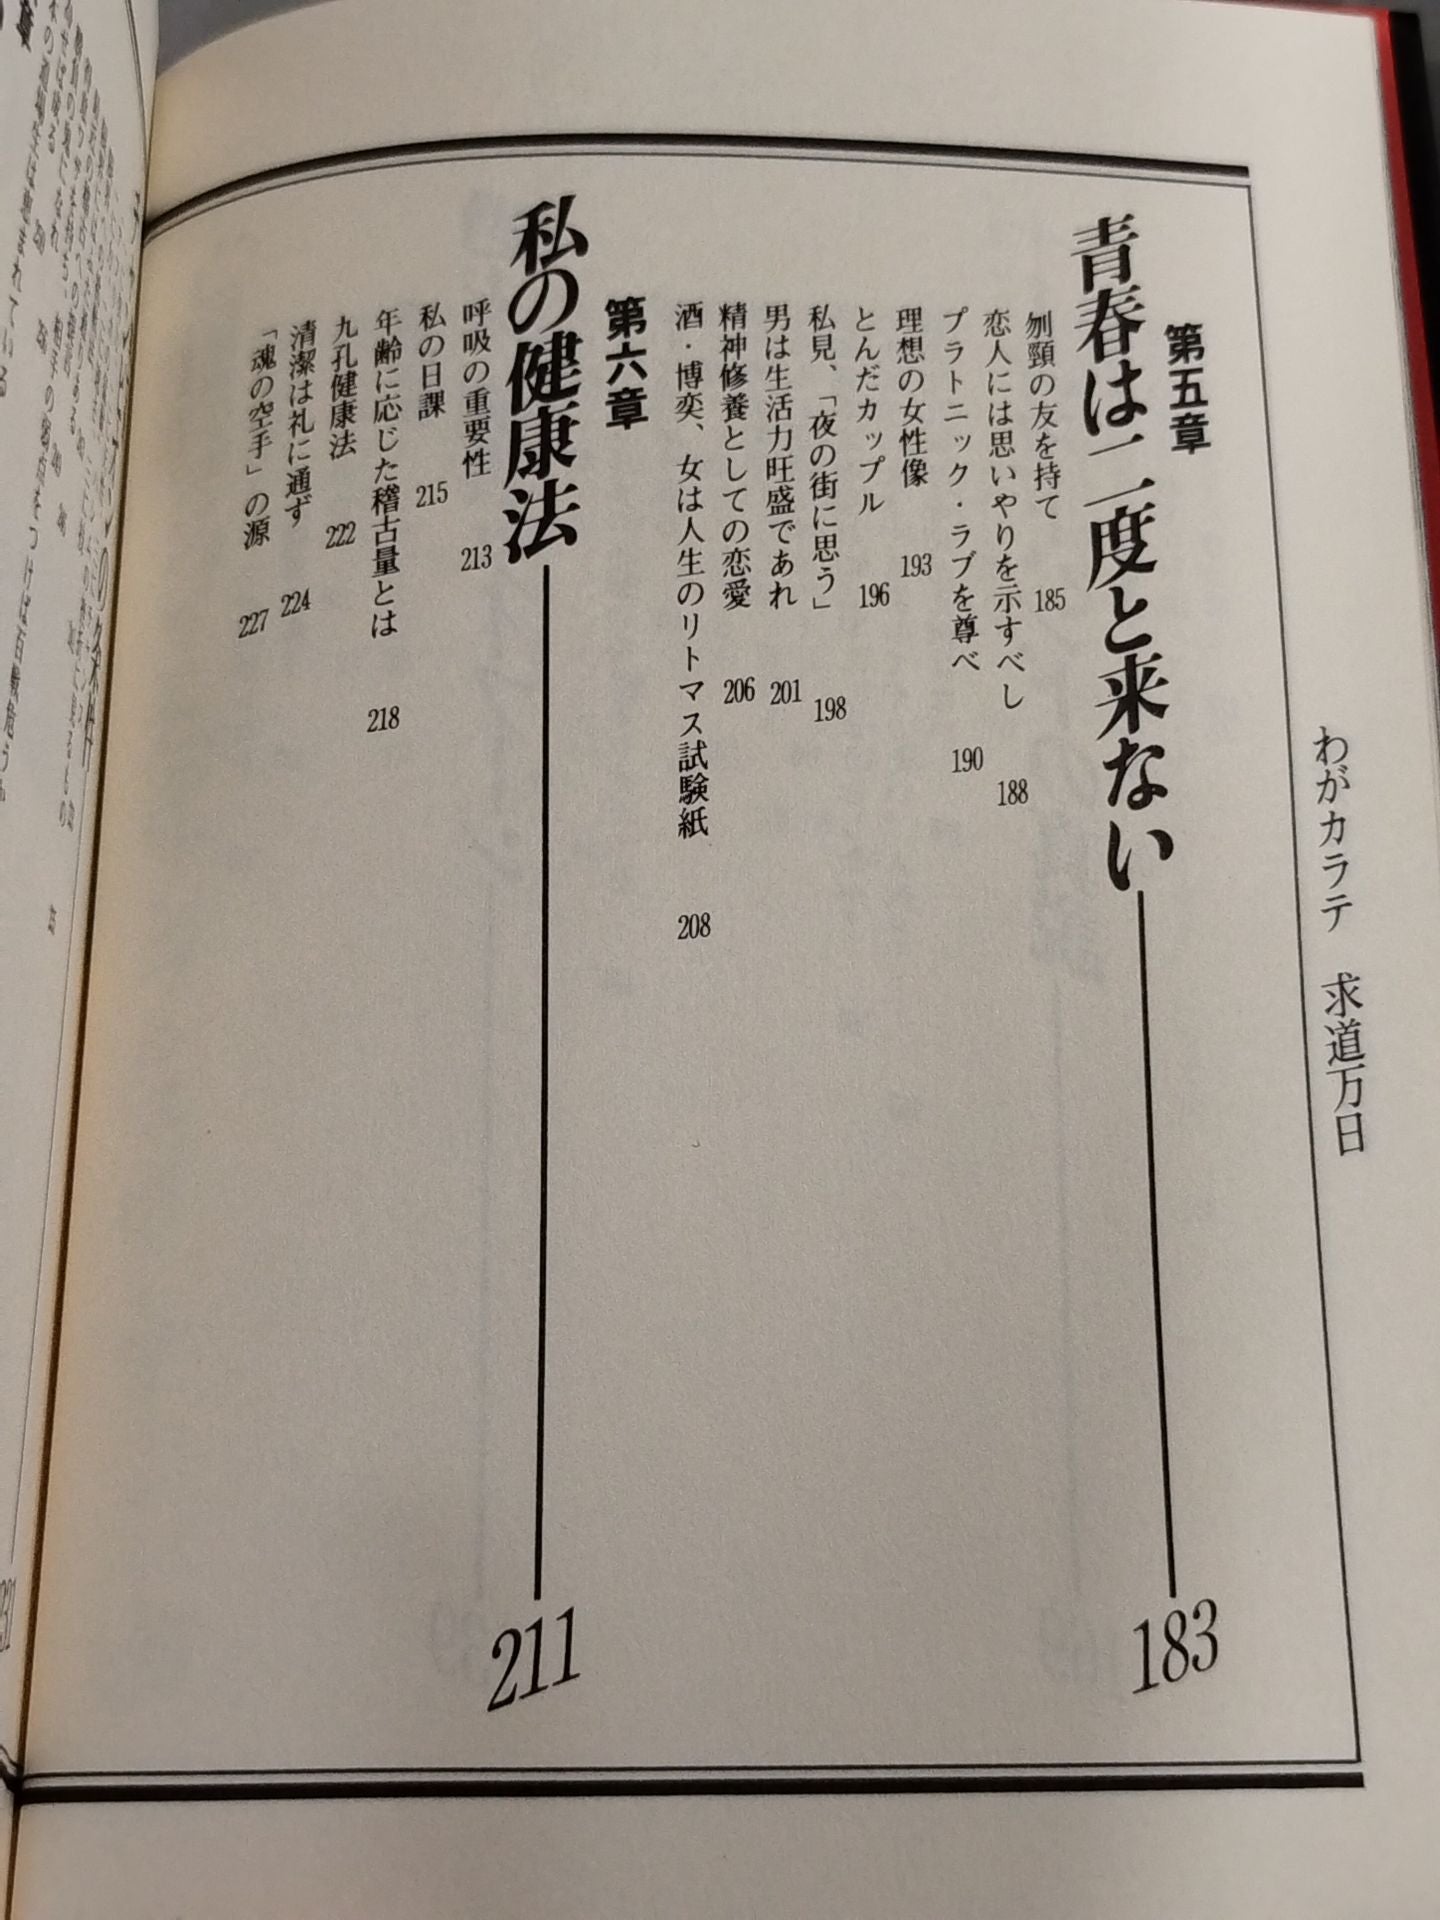 わがカラテ　求道万日
第五章
青春は二度と来ない 183
刎頸の友を持て 185
恋人には思いやりを示すべし 188
プラトニック・ラブを尊べ 190
理想の女性像 193
とんだカップル 196
私見、「夜の街に思う」 198
男は生活力旺盛であれ 201
精神修養としての恋愛 206
酒・博奕、女は人生のリトマス試験紙 208
第六章
私の健康法 211
呼吸の重要性 213
私の日課 215
年齢に応じた稽古量とは 218
九孔健康法 222
清潔は礼に通ず 224
「魂の空手」の源 227